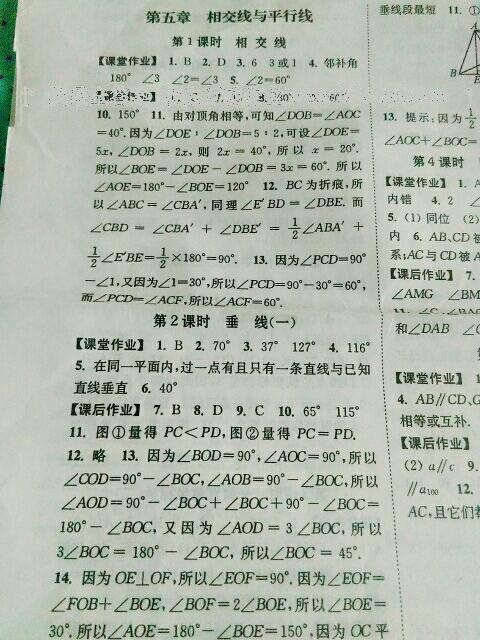 第五章 相交线与平行线
第1课时 相 交 线
【课堂作业】 1. B 2. D 3. 6 3或1 4. 邻补角
180° ∠3 ∠2=∠3 5. ∠2=60°
10. 150° 11. 由对顶角相等,可知∠DOB=∠AOC
=40°.因为∠DOE:∠DOB=5:2,可设∠DOE=
5x,∠DOB=2x,则 2x=40°,所以 x=20°.
所以∠BOE=∠DOE-∠DOB=3x=60°.所以
∠AOE=180°-∠BOE=120° 12. BC为折痕,所
以∠ABC=∠CBA′,同理∠E′BD=∠DBE.而
∠CBD=∠CBA′+∠DBE′=1/2∠ABA′+
1/2∠E′BE=1/2×180°=90°. 13. 因为∠PCD=90°
-∠1,又因为∠1=30°,所以∠PCD=90°-30°=60°,
而∠PCD=∠ACF,所以∠ACF=60°.
第2课时 垂 线(一)
【课堂作业】 1. B 2. 70° 3. 37° 127° 4. 116°
5. 在同一平面内,过一点有且只有一条直线与已知
直线垂直 6. 40°
【课后作业】 7. B 8. D 9. C 10. 65° 115°
11. 图①量得 PC<PD,图②量得 PC=PD.
12. 略 13. 因为∠BOD=90°,∠AOC=90°,所以
∠COD=90°-∠BOC,∠AOB=90°-∠BOC,所以
∠AOD=90°-∠BOC+∠BOC+90°-∠BOC=
180°-∠BOC,又因为∠AOD=3∠BOC,所以
3∠BOC=180°-∠BOC,所以∠BOC=45°.
14. 因为OE⊥OF,所以∠EOF=90°.因为∠EOF=
∠FOB+∠BOE,∠BOF=2∠BOE,所以∠BOE=
30°.所以∠AOE=180°-∠BOE=150°.因为OC平
垂线段最短 11. ①
B
13. 提示:因为1/2
∠AOC+∠BOC=
第4课时
【课堂作业】 1.
内错 4. 2 ∠
5. (1) 同位 (2)
内 6. AB、CD被
系;AC与CD被A
【课后作业】 7.
∠AMG ∠BM
和∠DAB ∠C
【课堂作业】 1
4. AB∥CD、G
相等或互补.
【课后作业】
(2) a∥c 9.
∥a100 12.
AC,且它们都